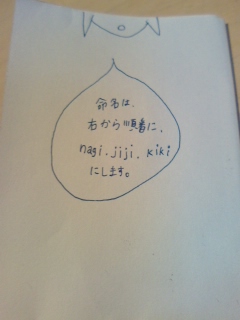 命名は、
右から順番に、
nagi.jiji.kiki
にします。